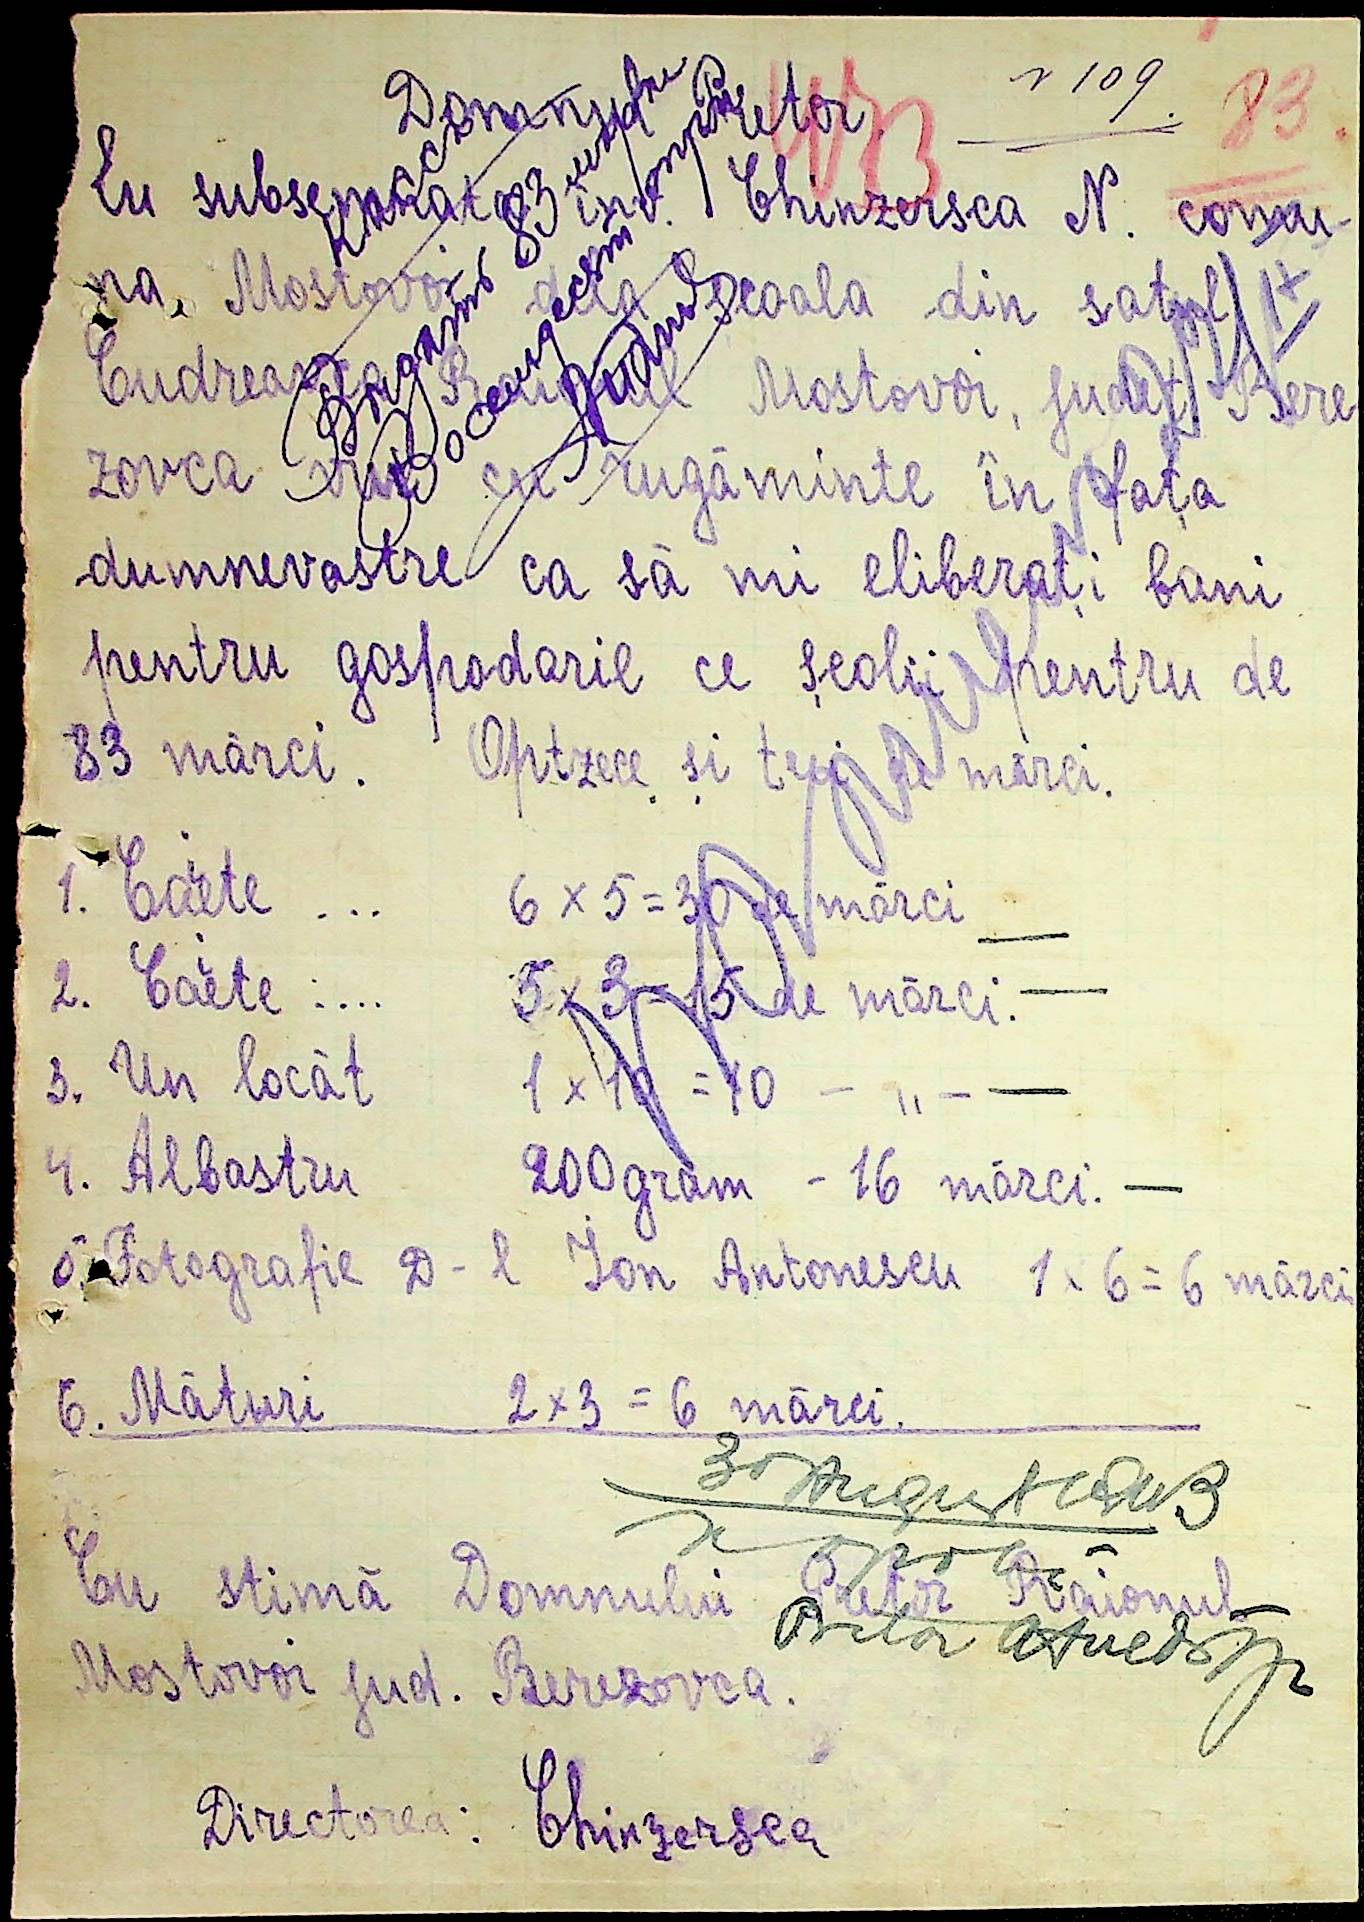 № 109.
83.
Domnule Pretor
Eu subsemnata înv. Chinzersca N. comu-
na, Mostovoi dela școala din satul
Cudreavca Raionul Mostovoi, județ. Bere
zovca vin cu rugăminte în fața
dumnevostre ca să mi eliberați bani
pentru gospodarie ce școlii pentru de
83 mărci. Optzece și trei de mărci.
1. Căete ... 6 x 5 = 30 de mărci —
2. Căete :.... 5 x 3 = 15 de mărci. —
3. Un locăt 1 x 10 = 10 - „ - —
4. Albastru 200 grăm - 16 mărci. —
5. Fotografie D-l Ion Antonescu 1 x 6 = 6 mărci
6. Mături 2 x 3 = 6 mărci.
30 August 1943
Cu stimă Domnului Pretor Raionul
Pretor
Mostovoi jud. Berezovca.
Directorea: Chinzersca